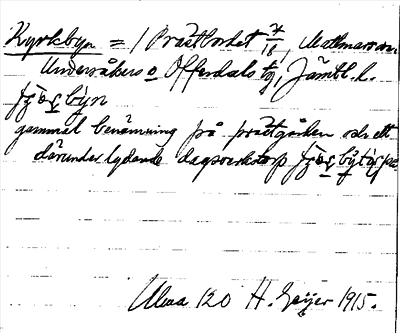 Kyrkbyn = 1 Prästbordet 7/16, Mattmars sn
Undersåkers o Offerdals tg, Jämtl. l.
byn
gammal benämning på prästgården och ett
därunder lydande dagsverkstorp
Ulma 120 H. Geijer 1915.